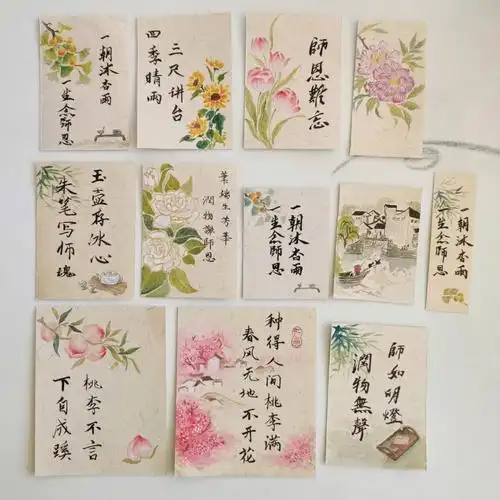 一朝沐杏雨
一生念师恩
三尺讲台
四季晴雨
師恩難忘
玉壶存冰心
朱笔写师魂
筆端生芳華
潤物謝師恩
一朝沐杏雨
一生念师恩
一朝沐杏雨
一生念师恩
桃李不言
下自成蹊
种得人间桃李满
春风无地不开花
師如明燈
潤物無聲